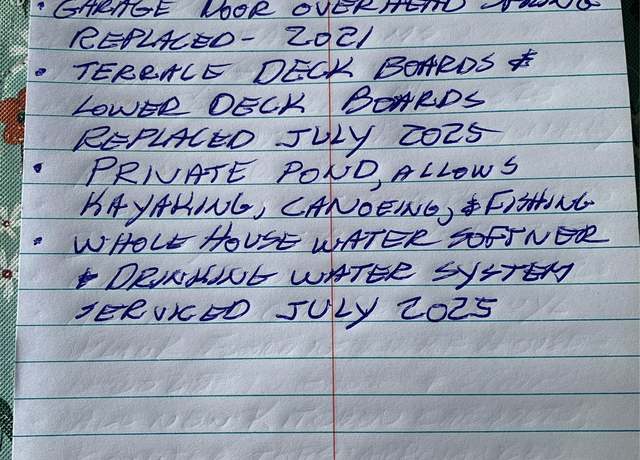 • GARAGE DOOR OVERHEAD SPRING
REPLACED- 2021
• TERRACE DECK BOARDS &
LOWER DECK BOARDS
REPLACED JULY 2025
• PRIVATE POND, ALLOWS
KAYAKING, CANOEING, & FISHING
• WHOLE HOUSE WATER SOFTNER
& DRINKING WATER SYSTEM
SERVICED JULY 2025